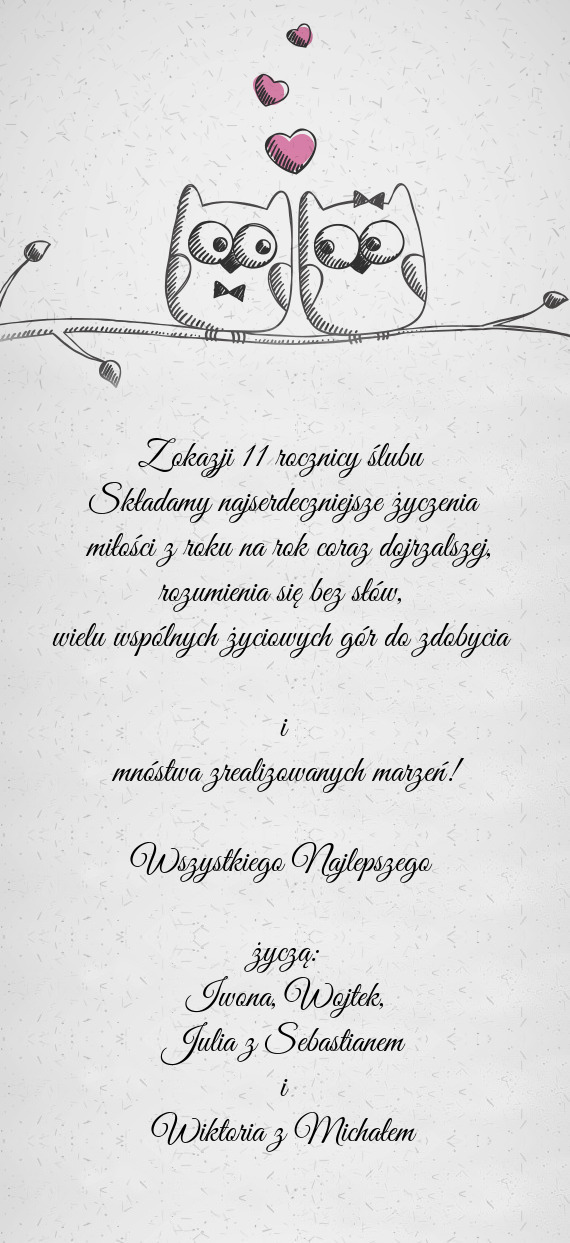 Z okazji 11 rocznicy ślubu
Składamy najserdeczniejsze życzenia
miłości z roku na rok coraz dojrzalszej,
rozumienia się bez słów,
wielu wspólnych życiowych gór do zdobycia
i
mnóstwa zrealizowanych marzeń!
Wszystkiego Najlepszego
życzą:
Iwona, Wojtek,
Julia z Sebastianem
i
Wiktoria z Michałem